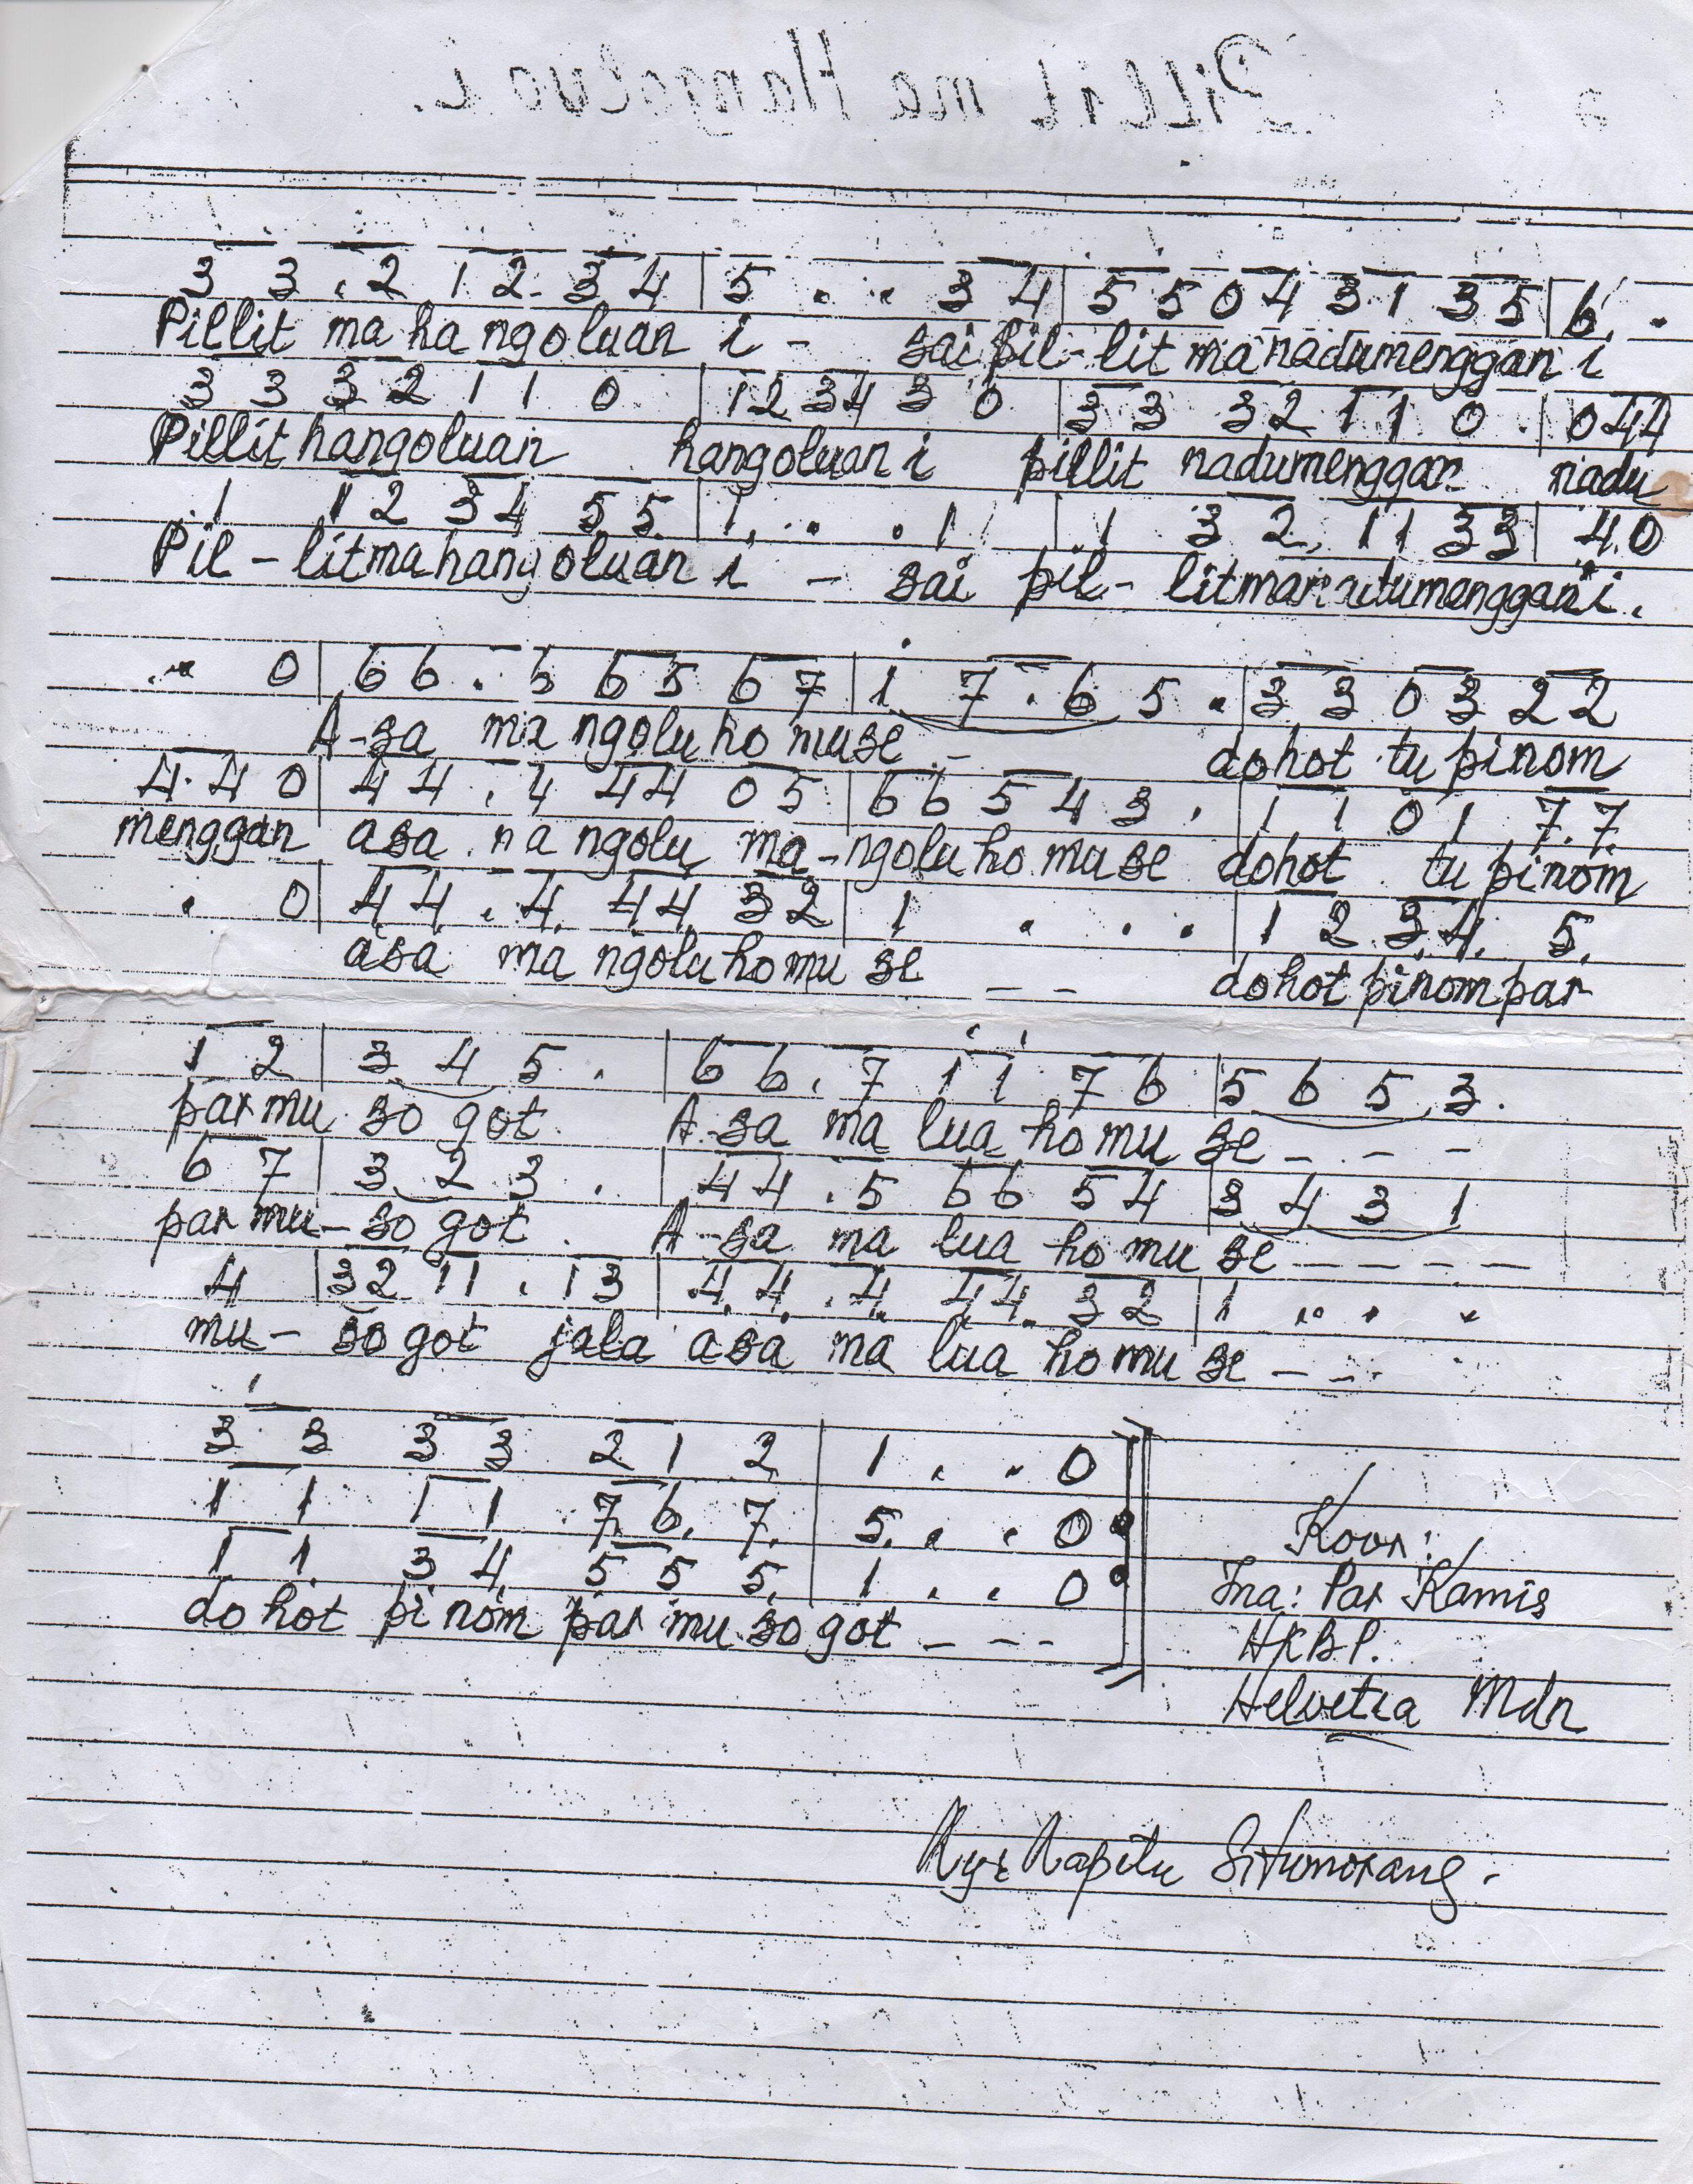 Pillit ma Hangoluan i.
3 3 . 2 1 2 . 3 4 | 5 . . 3 4 | 5 5 0 4 3 1 3 5 | 6 . .
Pillit ma ha ngoluan i - sai pil-lit ma nadumenggan i
3 3 3 2 1 1 0 | 1 2 3 4 3 0 | 3 3 3 2 1 1 0 . | 0 4 4
Pillit hangoluan hangoluan i pillit nadumenggan nadu
1 1 2 3 4 5 5 | 1 . . . 1 | 1 3 2 1 1 3 3 | 4 0
Pil - litmahangoluan i - sai pil - litmanadumenggan i.
. . 0 | 6 6 . 5 6 5 6 7 | 1 7 . 6 5 . | 3 3 0 3 2 2
A-sa ma ngolu ho muse - dohot tu pinom
4 4 0 | 4 4 . 4 4 4 0 5 | 6 6 5 4 3 . | 1 1 0 1 7 7
menggan asa ma ngolu ma-ngolu ho muse dohot tu pinom
. 0 | 4 4 . 4 4 4 3 2 | 1 . . . | 1 2 3 4 5
asa ma ngolu ho mu se - - dohot pinom par
1 2 | 3 4 5 . | 6 6 . 7 1 1 7 6 | 5 6 5 3 .
par mu so got. A-sa ma lua ho mu se - - -
6 7 | 3 2 3 . | 4 4 . 5 6 6 5 4 | 3 4 3 1
par mu - so got. A-sa ma lua ho mu se - - - -
4 | 3 2 1 1 . 1 3 | 4 4 . 4 4 4 3 2 | 1 . . . .
mu - so got jala asa ma lua ho mu se - - -
3 3 3 3 2 1 2 | 1 . . 0
1 1 1 1 7 6 7 | 5 . . 0
1 1 3 4 5 5 5 | 1 . . 0
do hot pi nom par mu so got - - -
Koor:
Ina: Par Kamis
HKBP.
Helvetia Mdn
Situmorang.